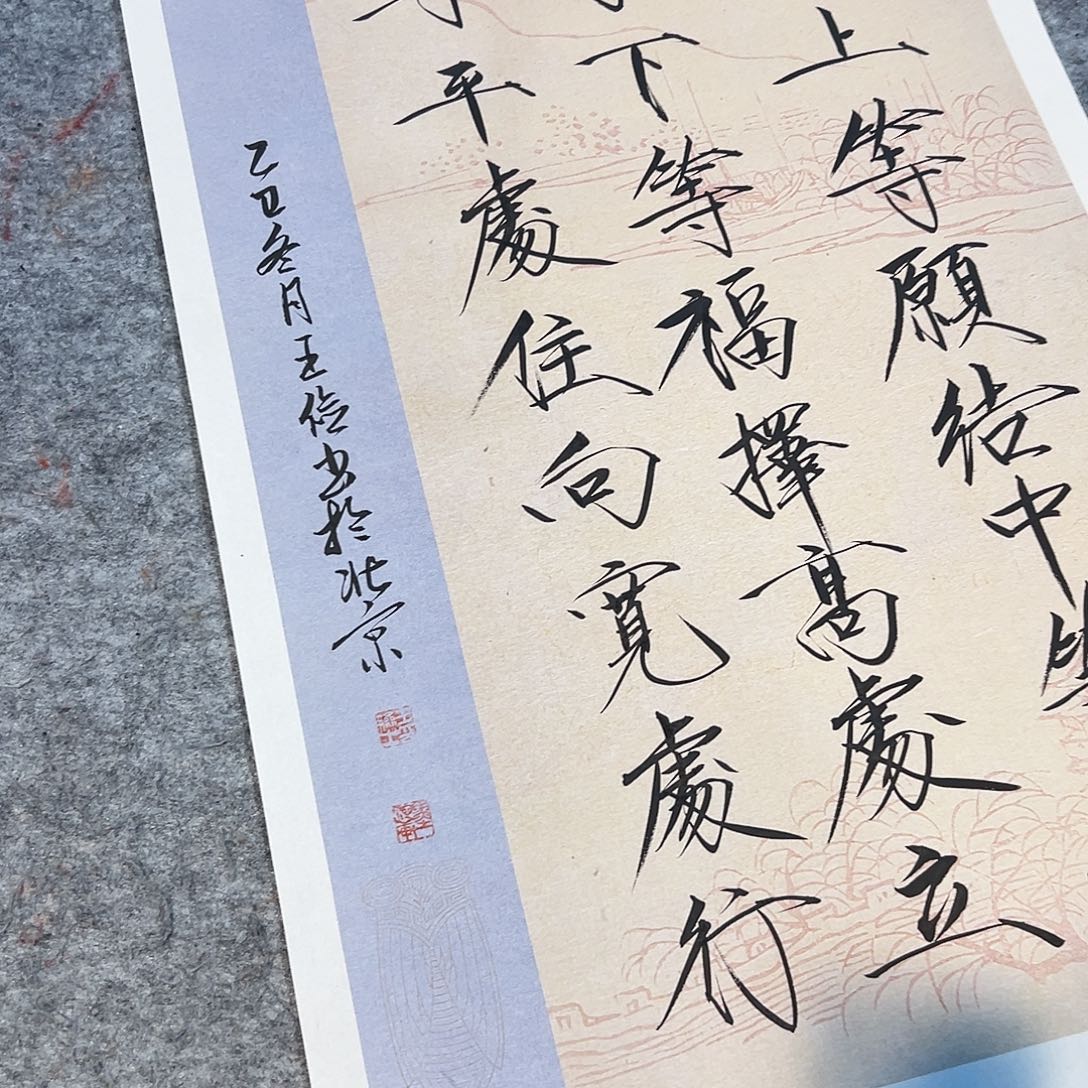 上等願結中
下等福擇高處立
平處住向寬處行
乙巳冬月王俭书於北京